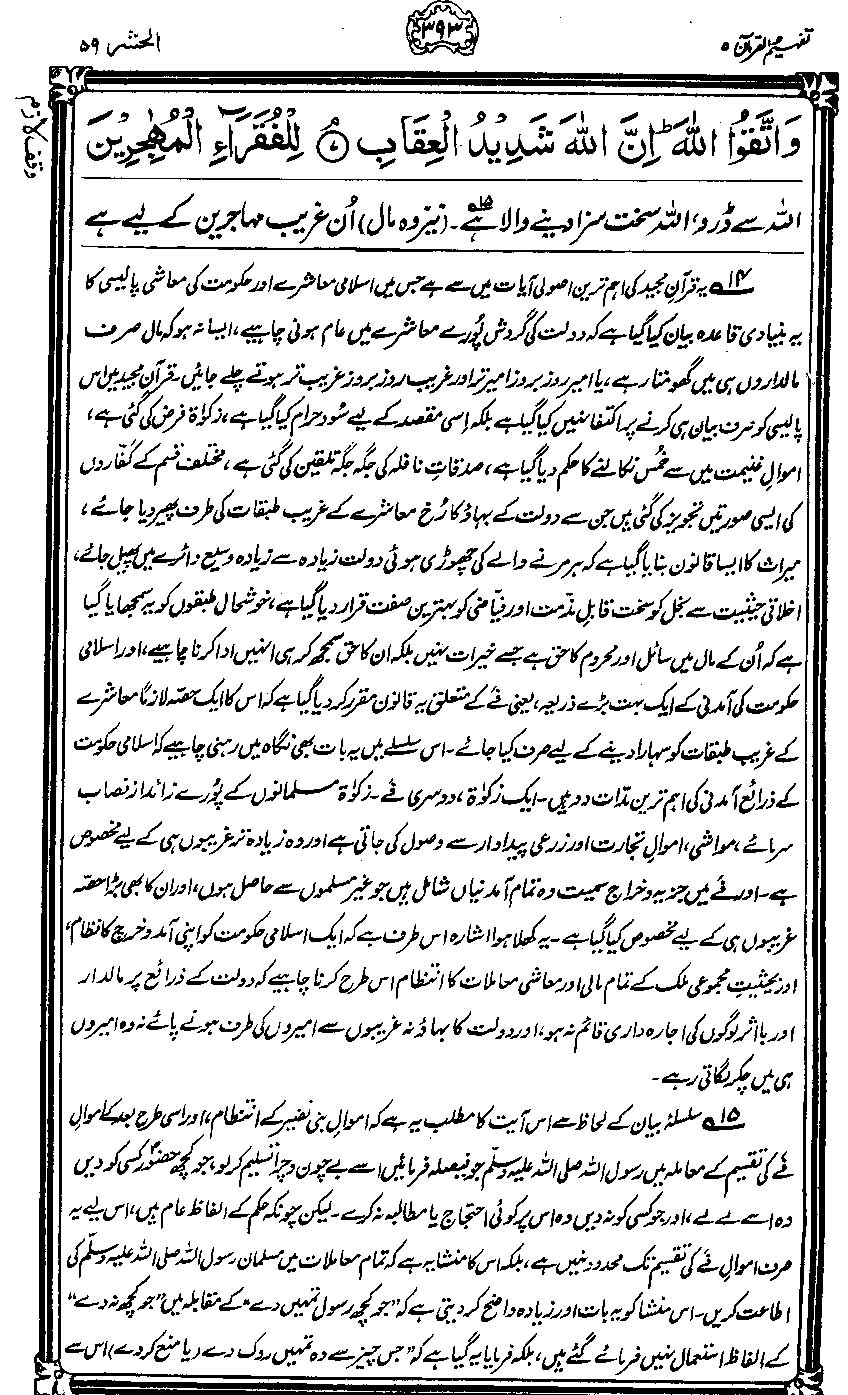 تفہیم القرآن ۵
۳۹۳
الحشر ۵۹
وقف لازم
وَاتَّقُوا اللّٰهَ ؕ اِنَّ اللّٰهَ شَدِيْدُ الْعِقَابِ ۘ﴿۷﴾ لِلْفُقَرَآءِ الْمُهٰجِرِيْنَ
اللہ سے ڈرو، اللہ سخت سزا دینے والا ہے۔۱۵ (نیز وہ مال) اُن غریب مہاجرین کے لیے ہے
۱۴ یہ قرآن مجید کی اہم ترین اصولی آیات میں سے ہے جس میں اسلامی معاشرے اور حکومت کی معاشی پالیسی کا
یہ بنیادی قاعدہ بیان کیا گیا ہے کہ دولت کی گردش پُورے معاشرے میں عام ہونی چاہیے، ایسا نہ ہو کہ مال صرف
مالداروں ہی میں گھومتا رہے، یا امیر روز بروز امیر تر اور غریب روز بروز غریب تر ہوتے چلے جائیں۔ قرآن مجید میں اس
پالیسی کو صرف بیان ہی کرنے پر اکتفا نہیں کیا گیا ہے بلکہ اِسی مقصد کے لیے سُود حرام کیا گیا ہے، زکوٰۃ فرض کی گئی ہے،
اموالِ غنیمت میں سے خُمس نکالنے کا حکم دیا گیا ہے، صدقاتِ نافلہ کی جگہ جگہ تلقین کی گئی ہے، مختلف قسم کے کفّاروں
کی ایسی صورتیں تجویز کی گئی ہیں جن سے دولت کے بہاؤ کا رُخ معاشرے کے غریب طبقات کی طرف پھیر دیا جائے،
میراث کا ایسا قانون بنایا گیا ہے کہ ہر مرنے والے کی چھوڑی ہوئی دولت زیادہ سے زیادہ وسیع دائرے میں پھیل جائے،
اخلاقی حیثیت سے بخل کو سخت قابلِ مذمت اور فیاضی کو بہترین صفت قرار دیا گیا ہے، خوشحال طبقوں کو یہ سمجھایا گیا
ہے کہ اُن کے مال میں سائل اور محروم کا حق ہے جسے خیرات نہیں بلکہ ان کا حق سمجھ کر ہی انہیں ادا کرنا چاہیے، اور اسلامی
حکومت کی آمدنی کے ایک بہت بڑے ذریعہ، یعنی فَے کے متعلق یہ قانون مقرر کر دیا گیا ہے کہ اس کا ایک حصّہ لازمًا معاشرے
کے غریب طبقات کو سہارا دینے کے لیے صرف کیا جائے۔ اس سلسلے میں یہ بات بھی نگاہ میں رہنی چاہیے کہ اسلامی حکومت
کے ذرائع آمدنی کی اہم ترین مَدّات دو ہیں۔ ایک زکوٰۃ، دوسری فَے۔ زکوٰۃ مسلمانوں کے پُورے زائد از نصاب
سرمائے، مواشی، اموالِ تجارت اور زرعی پیداوار سے وصول کی جاتی ہے اور وہ زیادہ تر غریبوں ہی کے لیے مخصوص
ہے۔ اور فَے میں جزیہ و خراج سمیت وہ تمام آمدنیاں شامل ہیں جو غیر مسلموں سے حاصل ہوں، اور ان کا بھی بڑا حصّہ
غریبوں ہی کے لیے مخصوص کیا گیا ہے۔ یہ کھلا ہوا اشارہ اس طرف ہے کہ ایک اسلامی حکومت کو اپنی آمد و خرچ کا نظام،
اور بحیثیتِ مجموعی ملک کے تمام مالی اور معاشی معاملات کا انتظام اس طرح کرنا چاہیے کہ دولت کے ذرائع پر مالدار
اور بااثر لوگوں کی اجارہ داری قائم نہ ہو، اور دولت کا بہاؤ نہ غریبوں سے امیروں کی طرف ہونے پائے نہ وہ امیروں
ہی میں چکر لگاتی رہے۔
۱۵ سلسلۂ بیان کے لحاظ سے اس آیت کا مطلب یہ ہے کہ اموالِ بنی نضیر کے انتظام، اور اسی طرح بعد کے اموالِ
فَے کی تقسیم کے معاملہ میں رسول اللہ صلی اللہ علیہ وسلّم جو فیصلہ فرمائیں اسے بے چون و چرا تسلیم کر لو، جو کچھ حضورؐ کسی کو دیں
وہ اسے لے لے، اور جو کسی کو نہ دیں وہ اس پر کوئی احتجاج یا مطالبہ نہ کرے۔ لیکن چونکہ حکم کے الفاظ عام ہیں، اس لیے یہ
صرف اموالِ فَے کی تقسیم تک محدود نہیں ہے، بلکہ اس کا منشا یہ ہے کہ تمام معاملات میں مسلمان رسول اللہ صلی اللہ علیہ وسلّم کی
اطاعت کریں۔ اس منشا کو یہ بات اور زیادہ واضح کر دیتی ہے کہ ”جو کچھ رسول تمہیں دے“ کے مقابلہ میں ”جو کچھ نہ دے“
کے الفاظ استعمال نہیں فرمائے گئے ہیں، بلکہ فرمایا یہ گیا ہے کہ ”جس چیز سے وہ تمہیں روک دے (یا منع کر دے) اس سے